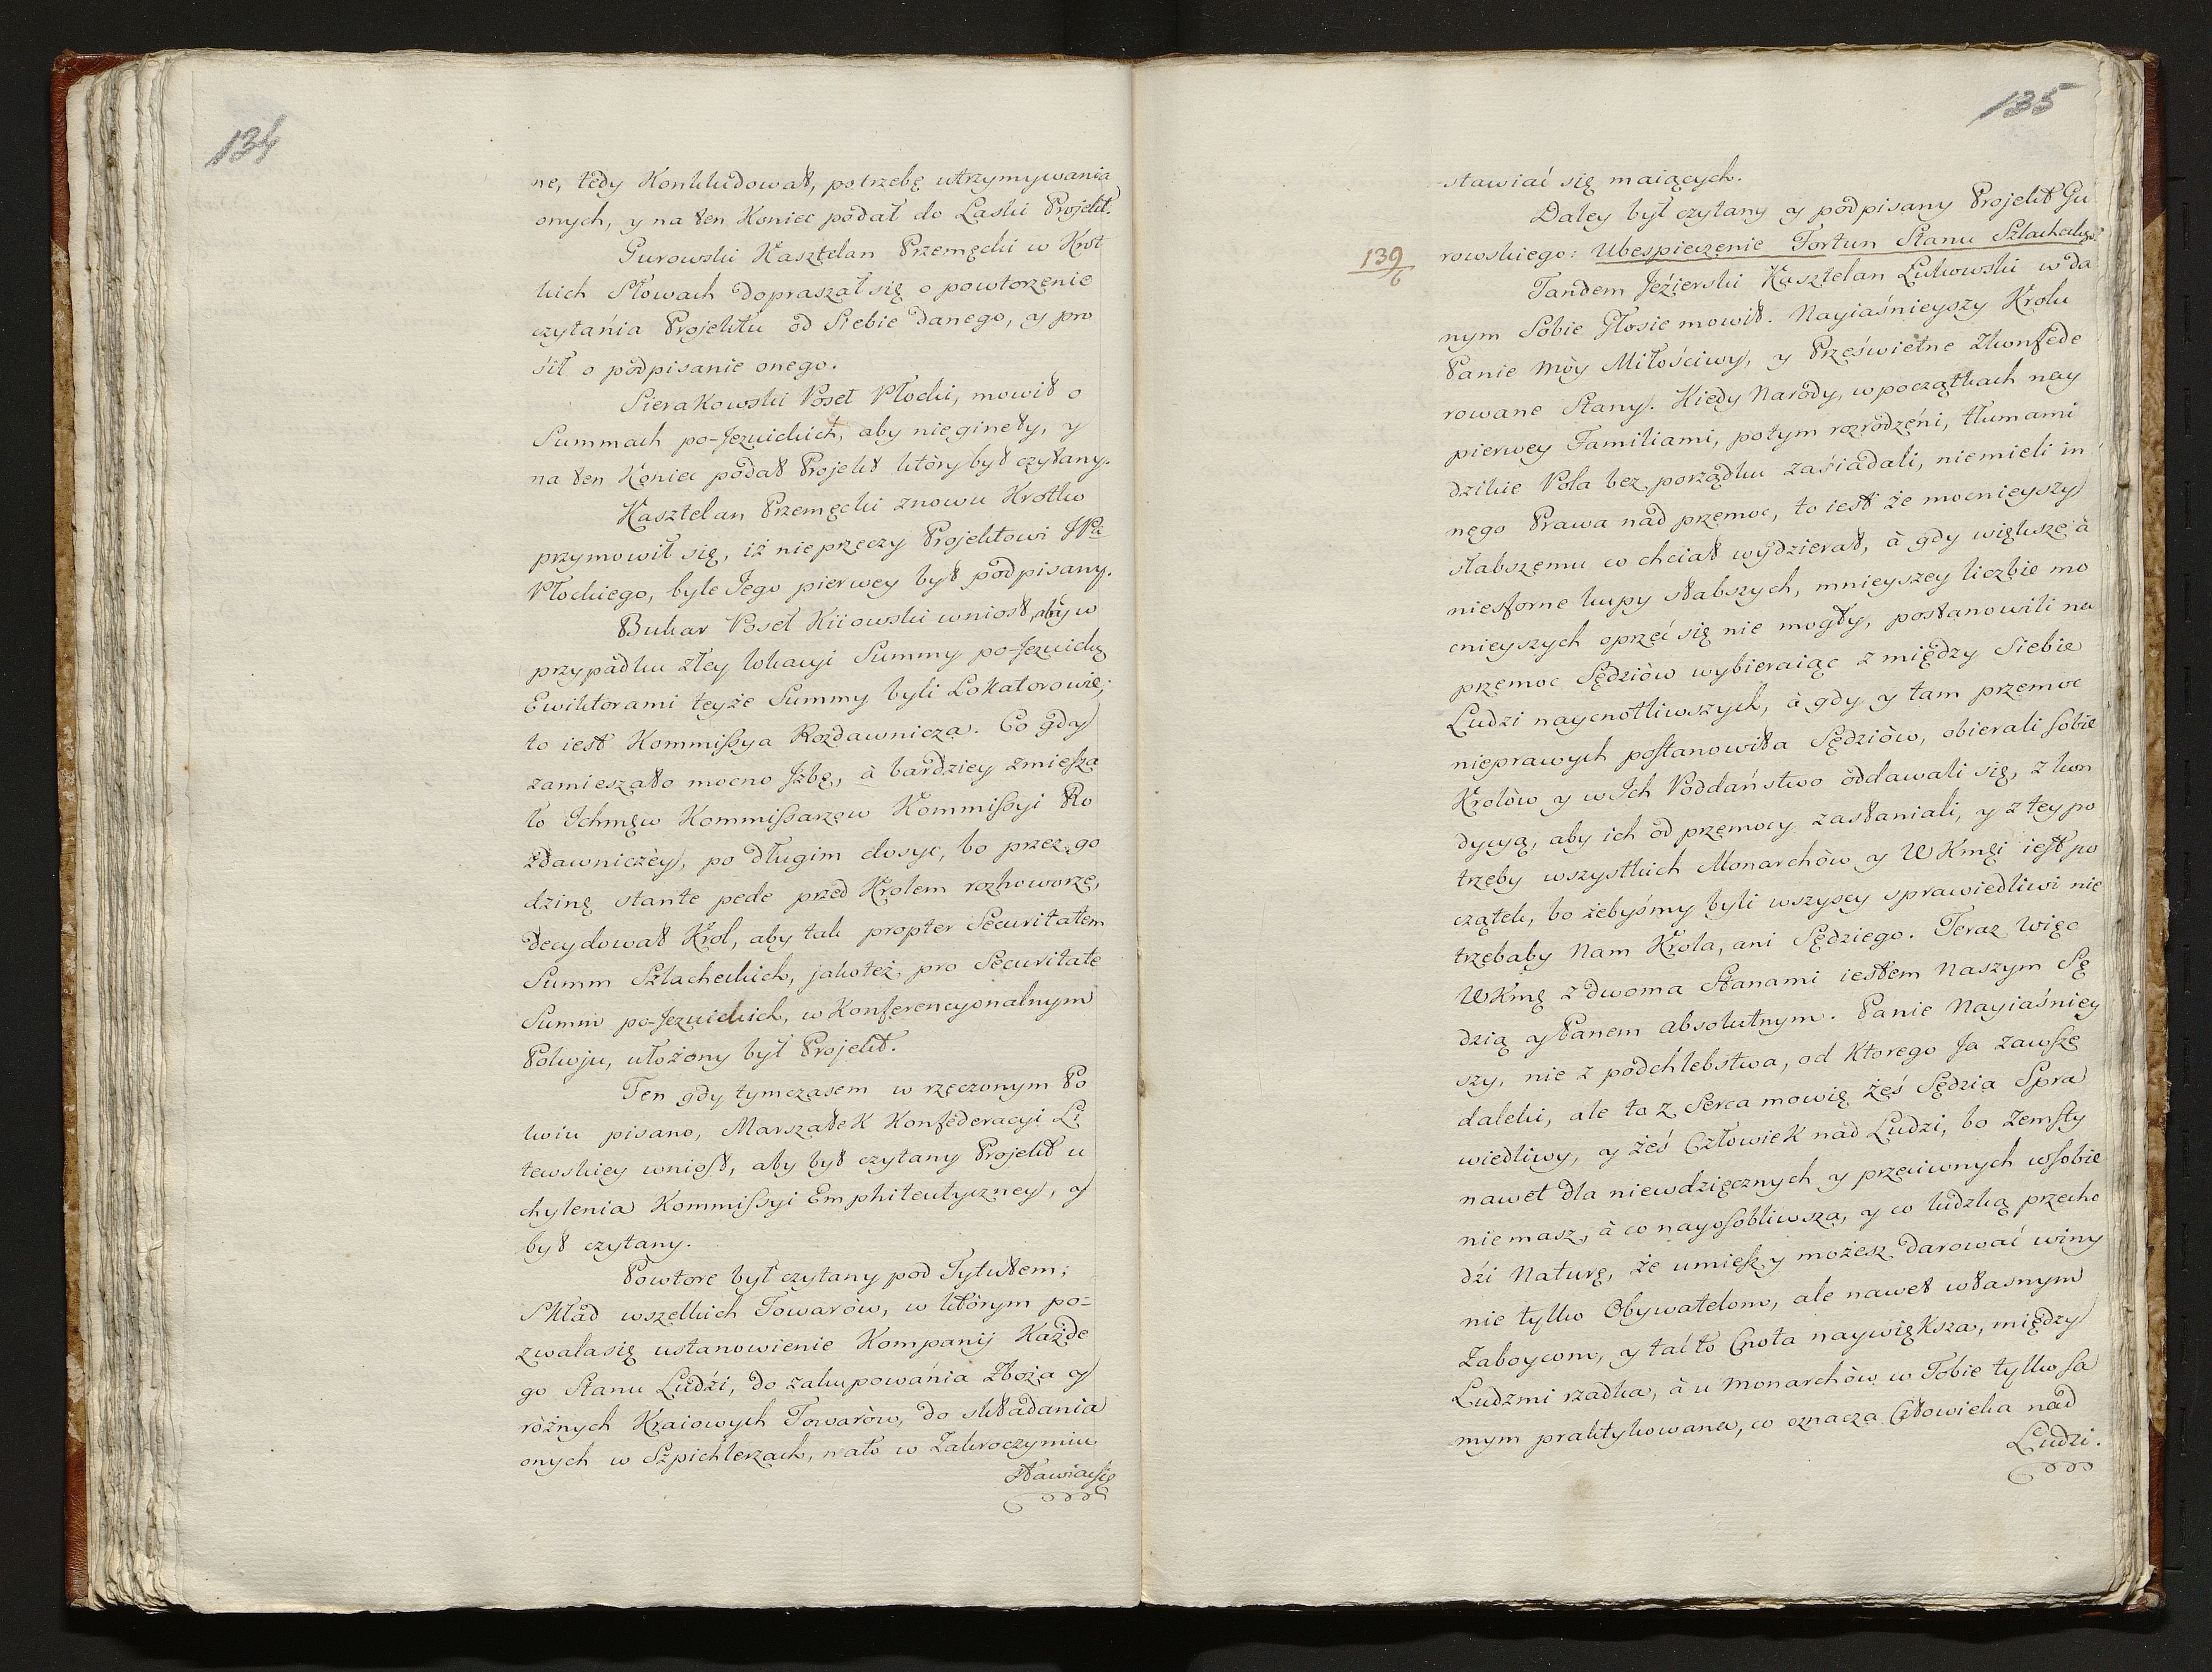 134
ne, tedy Konkludował, potrzebę utrzymywania
onych, y na ten Koniec podał do Laski Projekt.
Gurowski Kasztelan Przemęcki w Krot
kich Słowach dopraszał się o powtorzenie
czytania Projektu od Siebie danego, y pro
sił o podpisanie onego.
Sierakowski Poseł Płocki, mowił o
Summach po-Jezuickich, aby nieginęły, y
na ten Koniec podał Projekt ktòry był czytany.
Kasztelan Przemęcki znowu Krotko
przymowił się, iż nieprzeczy Projektowi JPa
Płockiego, byle Jego pierwey był podpisany.
Bukar Poseł Kiiowski wniosł, aby w
przypadku złey lokacyi Summy po-Jezuickiey
Ewiktorami teyże Summy byli Lokatorowie;
to iest Kommissya Rozdawnicza. Co gdy
zamieszało mocno Jzbę, à bardziey zmiesza
ło Ichmęw Kommissarzow Kommissyi Ro
zdawniczèy, po długim dosyc, bo przez go
dzinę stante pede przed Krolem rozhoworze,
decydował Krol, aby tak propter Securitatem
Summ Szlacheckich, jakoteż pro Securitate
Summ po-Jezuickich, w Konferencyonalnym
Pokoju, ułożony był Projekt.
Ten gdy tymczasem w rzeczonym Po
koiu pisano, Marszałek Konfederacyi Li
tewskiey wniosł, aby był czytany Projekt u
chylenia Kommissyi Emphiteutyczney, y
był czytany.
Powtore był czytany pod Tytułem;
Skład wszelkich Towaròw, w ktòrym po=
zwala się ustanowienie Kompanij Każde
go Stanu Ludzi, do zakupowania Zboża y
ròżnych Kraiowych Towaròw, do składania
onych w Szpichlerzach, nato w Zakroczymiu
stawiać się
135
stawiać się maiących.
Daley był czytany y podpisany Projekt Gu
139/6
rowskiego: Ubespieczenie Fortun Stanu Szlacheckiego.
Tandem Jeźierski Kasztelan Łukowski w da
nym Sobie Głosie mowił. Nayiaśnieyszy Krolu
Panie mòy Miłościwy, y Prześwietne Zkonfede
rowane Stany. Kiedy Narody, w początkach nay
pierwey Familiami, potym rozrodzeni, tłumami
dzikie Pola bez porządku zasiadali, niemieli in
nego Prawa nad przemoc, to iest że mocnieyszy
słabszemu co chciał wydzierał, à gdy większe à
niesforne kupy słabszych, mnieyszey liczbie mo
cnieyszych oprzeć się nie mogły, postanowili na
przemoc Sędziòw wybieraiąc z między Siebie
Ludzi naycnotliwszych, à gdy y tam przemoc
nieprawych postanowiła Sędziòw, obierali sobie
Krolòw y w Ich Poddaństwo oddawali się, z kon
dycyą, aby ich od przemocy zasłaniali, y z tey po
trzeby wszystkich Monarchòw y WKmci iest po
czątek, bo żebyśmy byli wszyscy sprawiedliwi nie
trzebaby Nam Krola, ani Sędziego. Teraz więc
WKmć z dwoma Stanami iestem Naszym Sę
dzią y Panem absolutnym. Panie Nayiaśniey
szy, nie z podchlebstwa, od Ktorego Ja zawsze
daleki, ale to z Serca mowię żeś Sędzia Spra
wiedliwy, y żeś Człowiek nad Ludzi, bo zemsty
nawet dla niewdzięcznych y przeciwnych w sobie
nie masz, à co nayosobliwsza, y co ludzką przecho
dźi Naturę, że umiesz y możesz darować winy
nie tylko Obywatelom, ale nawet własnym
Zaboycom, y tać to Cnota naywiększa, między
Ludzmi rzadka, à u Monarchòw w Tobie tylko sa
mym praktykowana, co oznacza Człowieka nad
Ludzi.